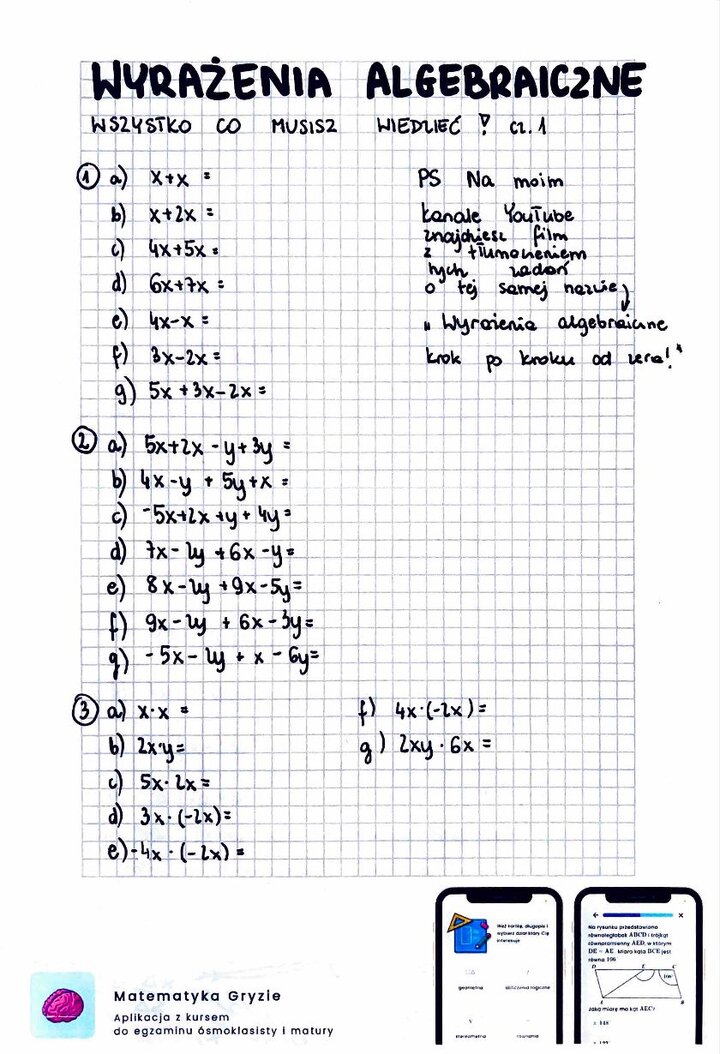 WYRAŻENIA ALGEBRAICZNE
WSZYSTKO CO MUSISZ WIEDZIEĆ ! cz. 1
① a) x+x =
b) x+2x =
c) 4x+5x =
d) 6x+7x =
e) 4x-x =
f) 3x-2x =
g) 5x+3x-2x =
PS Na moim
kanale YouTube
znajdziesz film
z tłumaczeniem
tych zadań
o tej samej nazwie
"Wyrażenia algebraiczne
krok po kroku od zera!"
② a) 5x+2x-y+3y =
b) 4x-y+5y+x =
c) -5x+2x+y+4y =
d) 7x-2y+6x-y =
e) 8x-2y+9x-5y =
f) 9x-2y+6x-3y =
g) -5x-2y+x-6y =
③ a) x·x =
b) 2x·y =
c) 5x·2x =
d) 3x·(-2x) =
e) -4x·(-2x) =
f) 4x·(-2x) =
g) 2xy·6x =
Matematyka Gryzie
Aplikacja z kursem
do egzaminu ósmoklasisty i matury
Weź kartkę, długopis i
wybierz dział który Cię
interesuje
geometria
obliczenia logiczne
stereometria
równania
Na rysunku przedstawiono
równoległobok ABCD i trójkąt
równoramienny AED, w którym
DE = AE. Miara kąta BCE jest
równa 106
D E C
106°
A B
Jaką miarę ma kąt AEC?
148